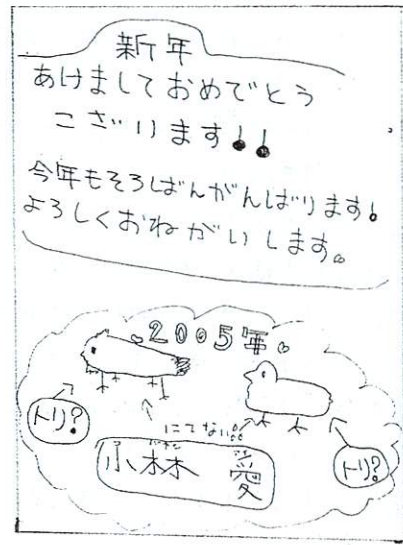 新年
あけましておめでとう
ございます!!
今年もそろばんがんばります!
よろしくおねがいします。
。2005年。
トリ?
にてない!!
トリ?
小林 愛